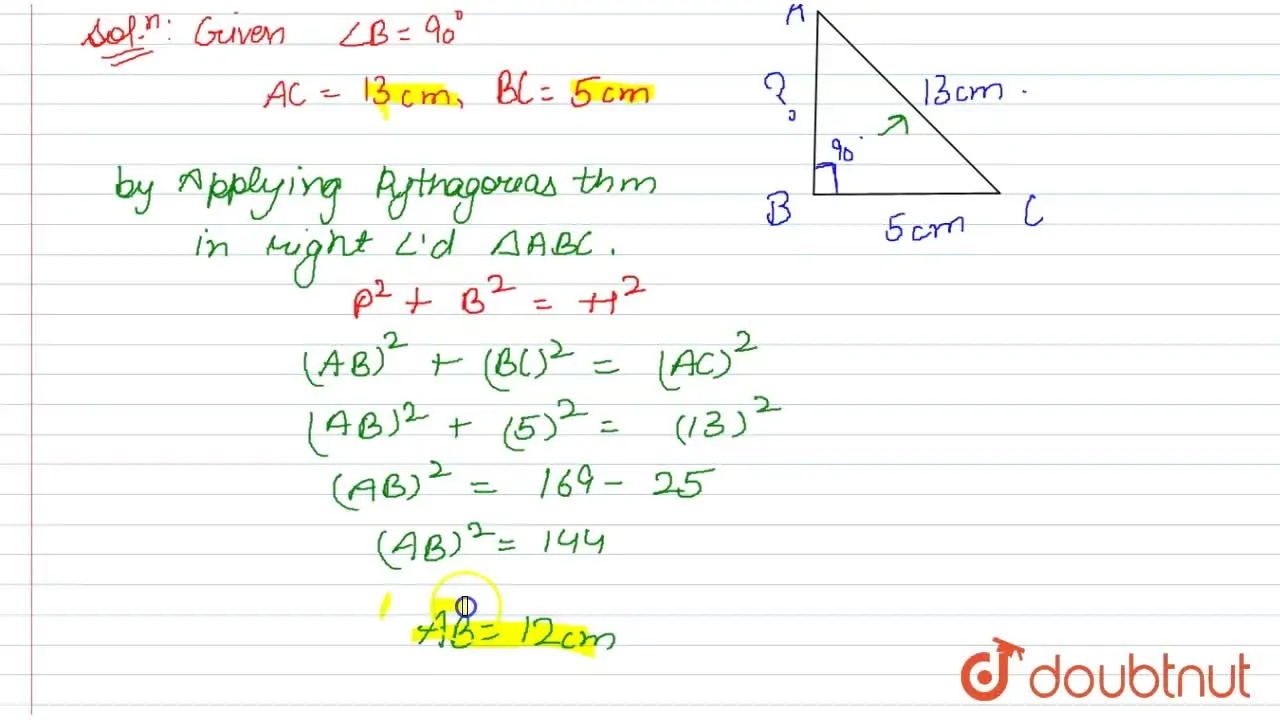 Sol.ⁿ: Given ∠B = 90°
AC = 13 cm, BC = 5 cm
by Applying Pythagoreas thm
in right ∠'d △ABC.
P² + B² = H²
(AB)² + (BC)² = (AC)²
(AB)² + (5)² = (13)²
(AB)² = 169 - 25
(AB)² = 144
AB = 12 cm
A
?
13 cm.
90°
B
5 cm
C
doubtnut